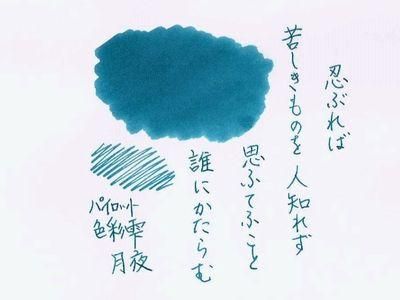 忍ぶれば
苦しきものを人知れず
思ふてふこと
誰にかたらむ
パイロット
色彩雫
月夜